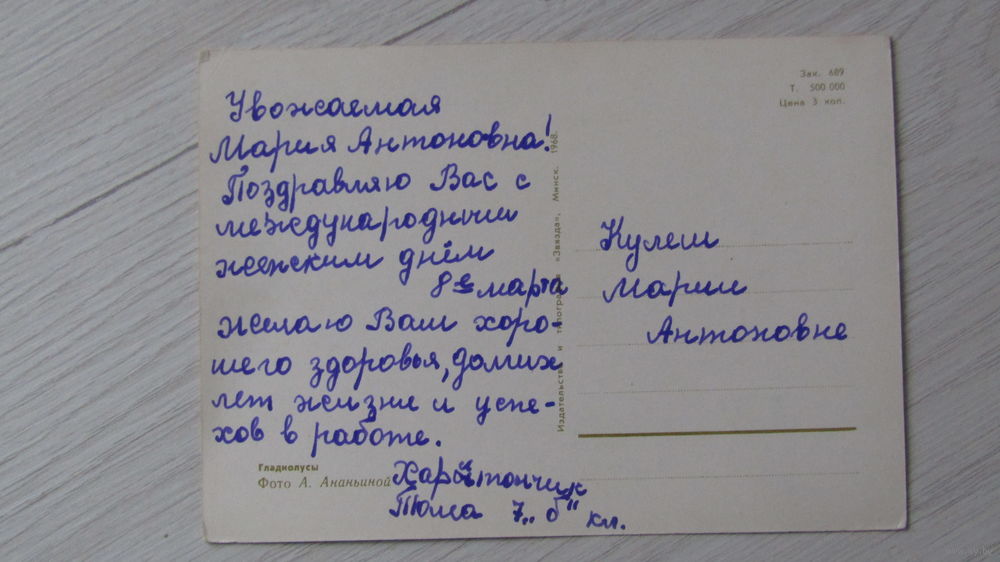 Уважаемая
Мария Антоновна!
Поздравляю Вас с
международным
женским днём
8ое марта
желаю Вам хоро-
шего здоровья, долгих
лет жизни и успе-
хов в работе.
Харытончик
Тома 7 „б" кл.
Гладиолусы
Фото А. Ананьиной
Издательство и типография «Звязда», Минск. 1968.
Зак. 689
Т. 500 000
Цена 3 коп.
Кулеш
Марии
Антоновне